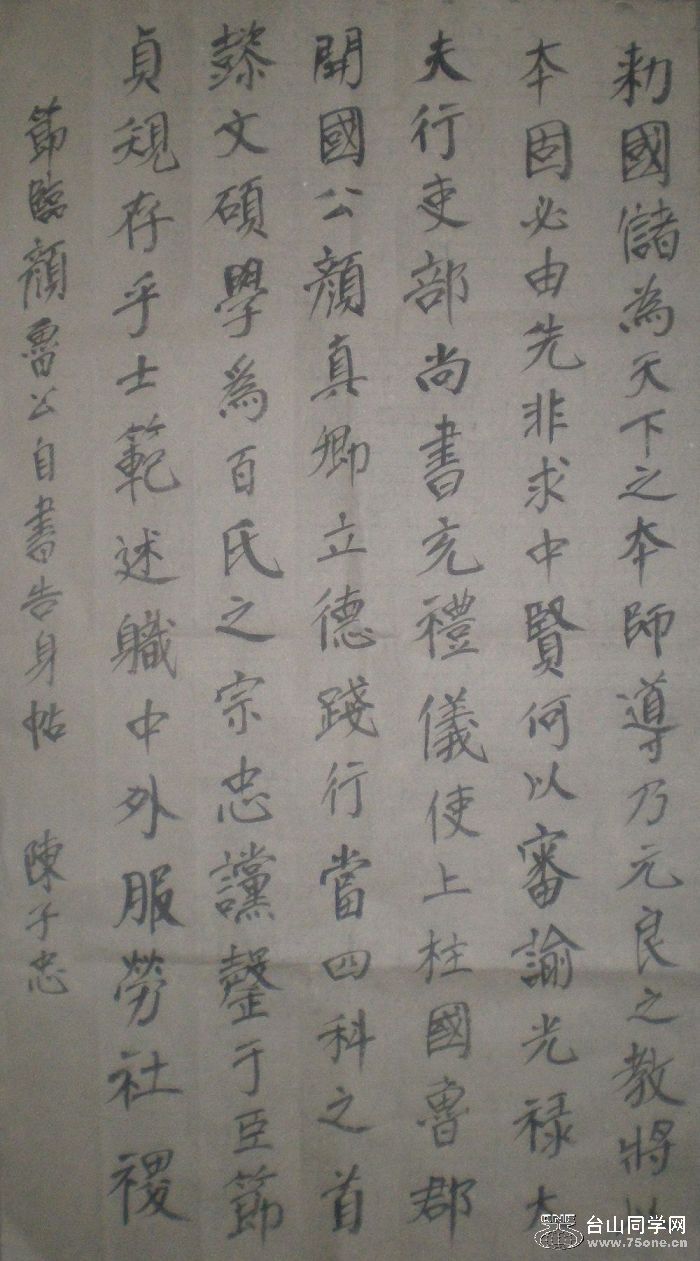 勑國儲為天下之本師導乃元良之教將以
本固必由先非求中賢何以審諭光禄大
夫行吏部尚書充禮儀使上柱國魯郡
開國公顏真卿立德踐行當四科之首
懿文碩學為百氏之宗忠讜罄于臣節
貞規存乎士範述職中外服勞社稷
節臨顏魯公自書告身帖 陳子忠
台山同学网
www.75one.cn